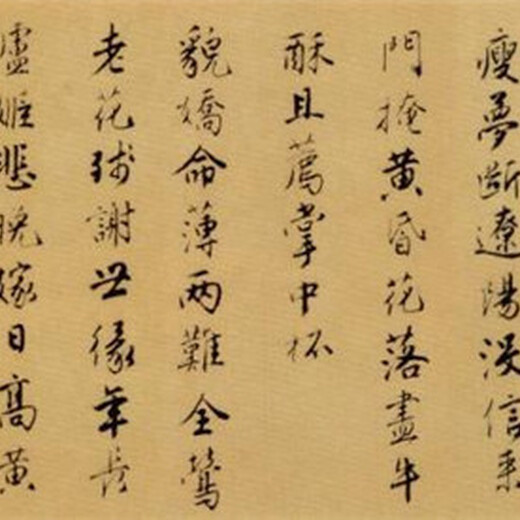 瘦夢斷遼陽沒信來
門掩黄昏花落盡牛
酥且薦掌中杯
貌嬌命薄两難全鶯
老花殘謝世緣年長
盧姬悲晚嫁日高黄